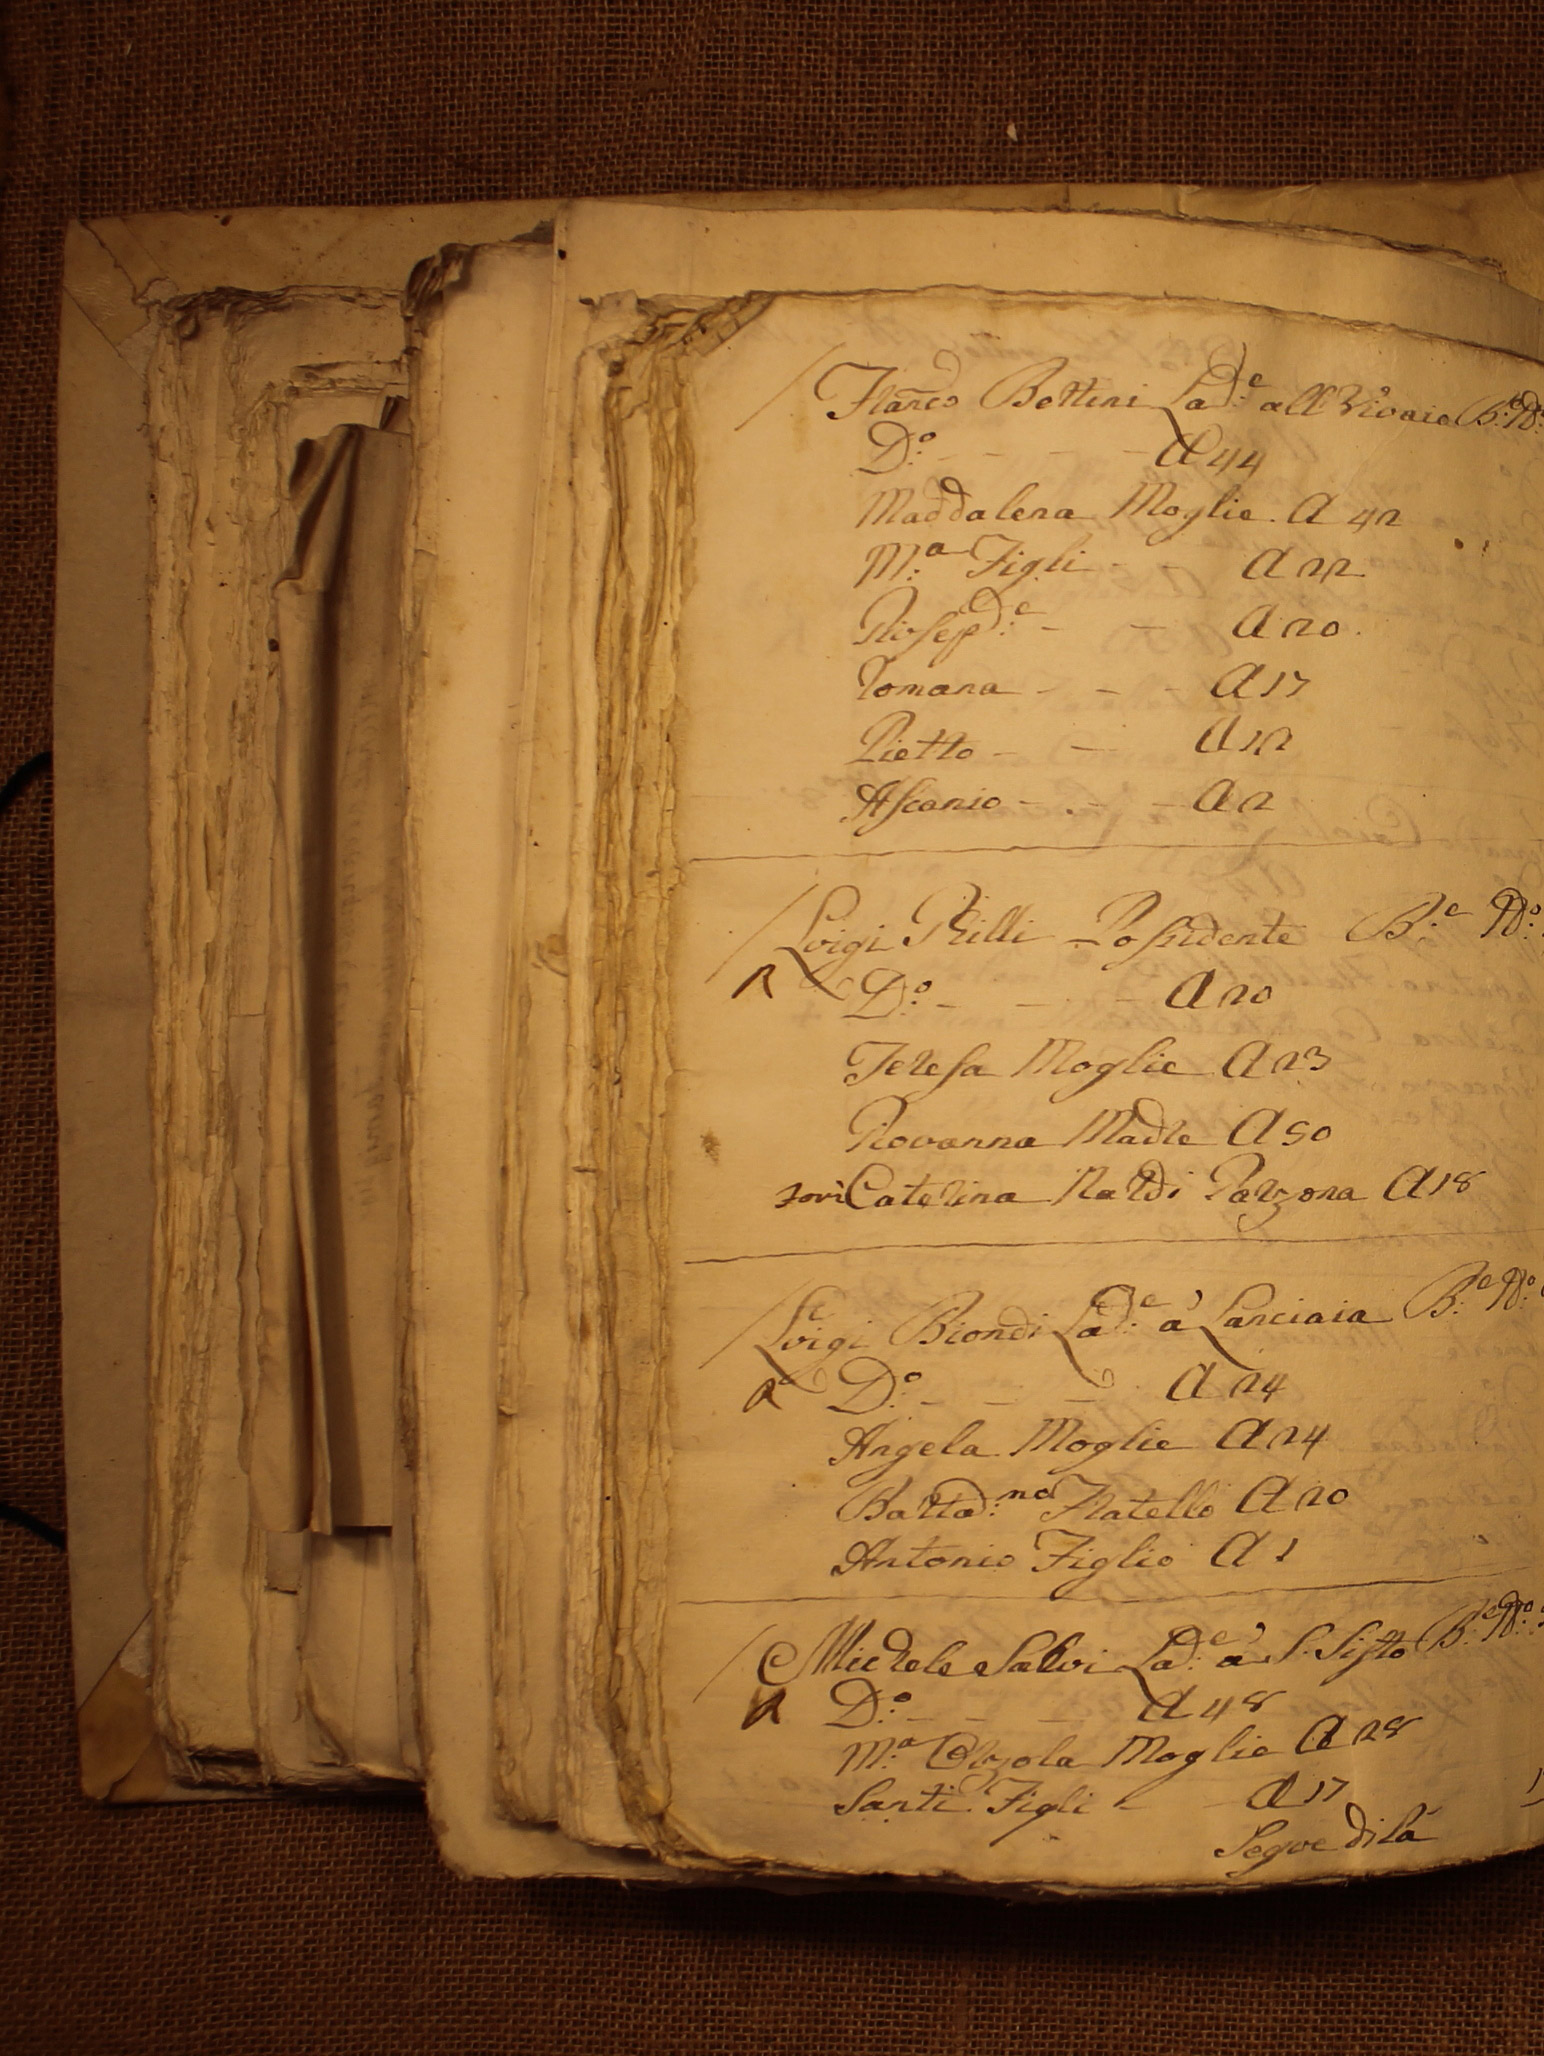 Franco Bottini Lad:e all Vivaio B:e N:o
D:o - - - - A 44
Maddalena Moglie. A 42
M:a Figli - - A 22
Giosepd:e - - A 20.
Romana - - - A 17
Pietro - - A 12
Ascanio - - - A 2
Luigi Rilli Possidente B:e N:o
R D:o - - - A 20
Teresa Moglie A 23
Giovanna Madre A 50
Caterina Nardi Garzona A 18
Luigi Biondi Lad:e à Lanciaia B:e N:o
D:o - - - A 24
Angela Moglie A 24
Battad:no Fratello A 20
Antonio Figlio A 1
Michele Salvi Lad:e à S. Sisto B:e N:o
R D:o - - - A 48
M:a Orzola Moglie A 28
Santi Figli - - A 17
Segue di là